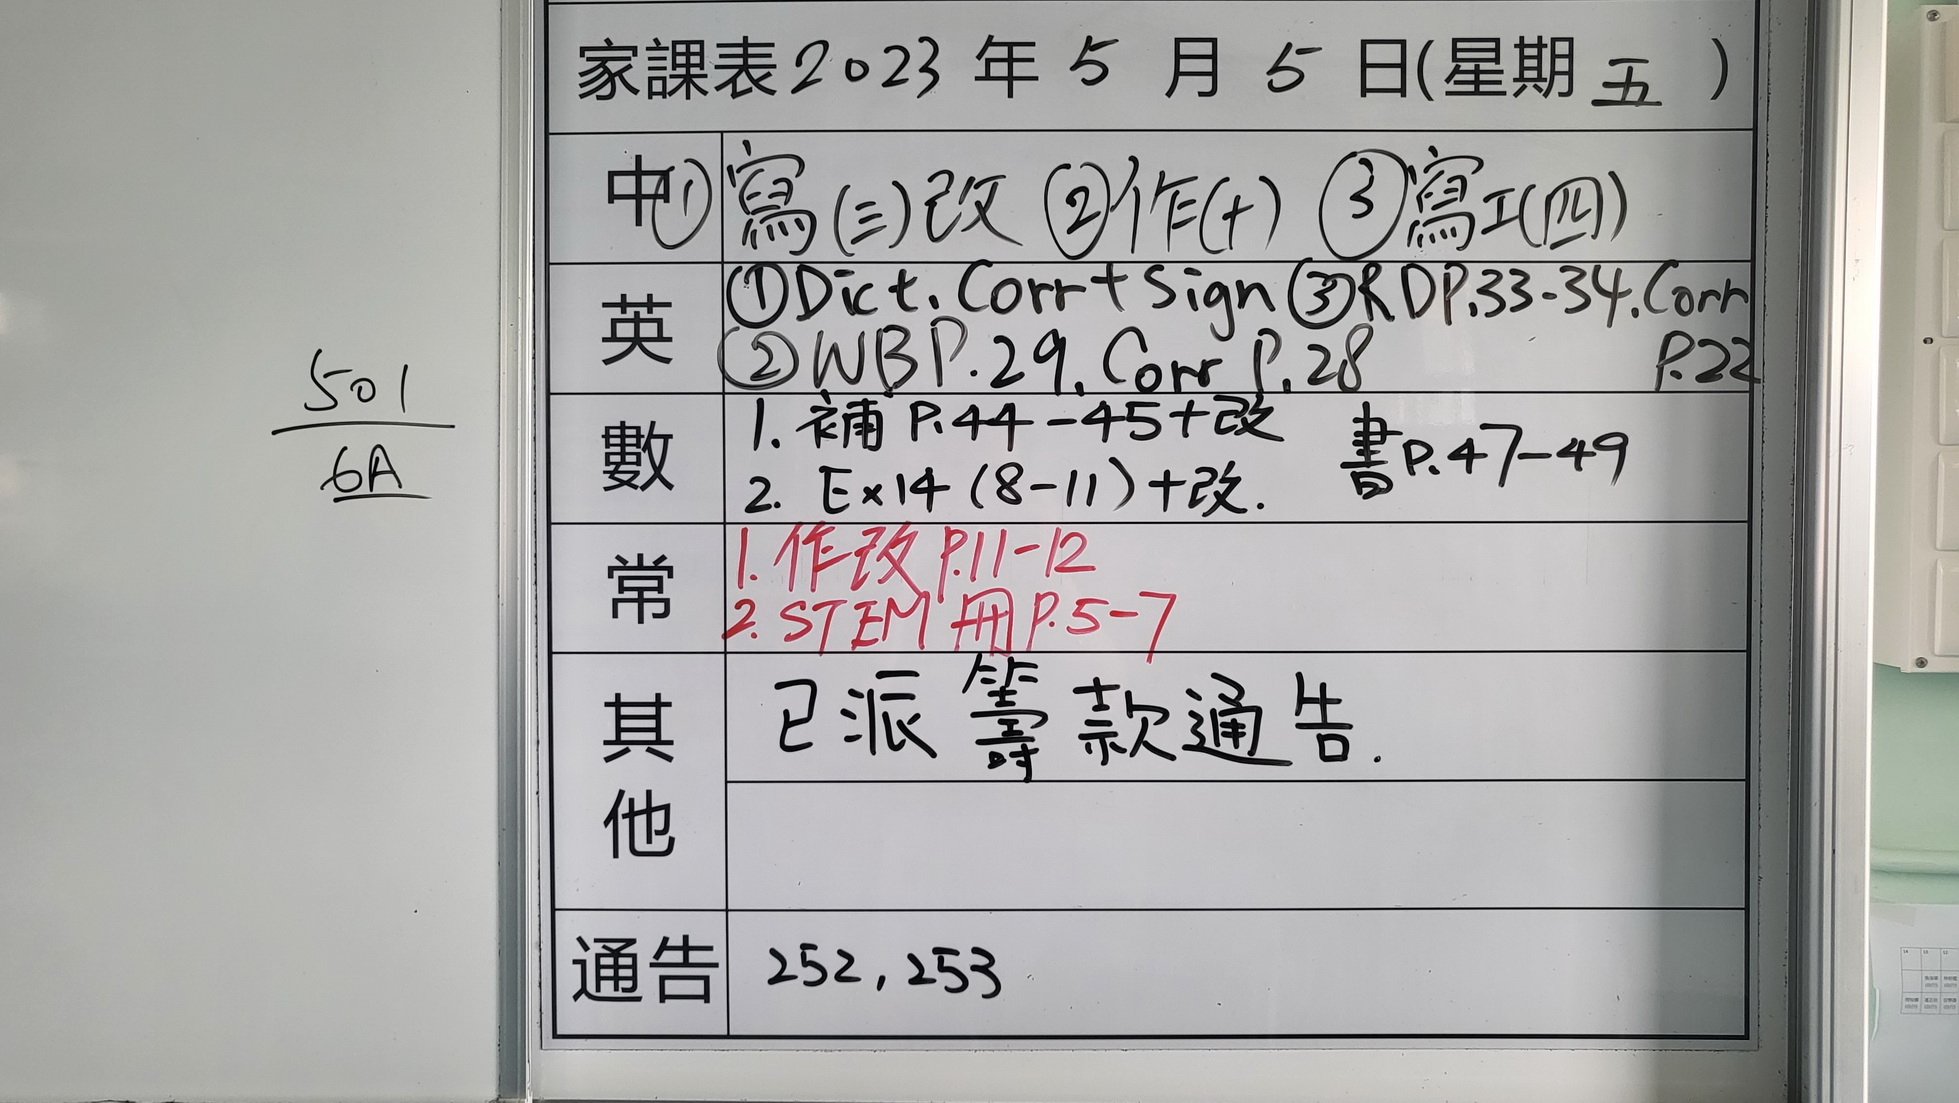 家課表2023年5月5日(星期五)
中 ①寫(三)改 ②作(十) ③寫工(四)
英 ①Dict. Corr+Sign ③RDP.33-34.Corr
②WBP.29.Corr P.28 P.22
數 1. 補P.44-45+改 書P.47-49
2. Ex14(8-11)+改.
常 1.作改P.11-12
2.STEM冊P.5-7
其他 已派籌款通告.
通告 252,253
501
6A